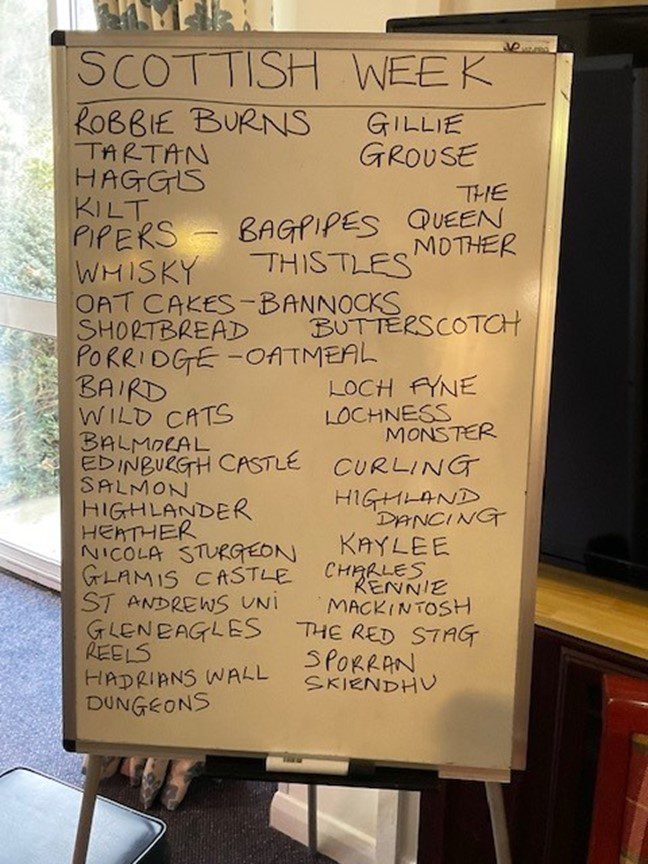 SCOTTISH WEEK
ROBBIE BURNS GILLIE
TARTAN GROUSE
HAGGIS
KILT THE
PIPERS - BAGPIPES QUEEN
WHISKY THISTLES MOTHER
OAT CAKES-BANNOCKS
SHORTBREAD BUTTERSCOTCH
PORRIDGE-OATMEAL
BAIRD LOCH FYNE
WILD CATS LOCHNESS
BALMORAL MONSTER
EDINBURGH CASTLE CURLING
SALMON
HIGHLANDER HIGHLAND
HEATHER DANCING
NICOLA STURGEON KAYLEE
GLAMIS CASTLE CHARLES
RENNIE
ST ANDREWS UNI MACKINTOSH
GLENEAGLES THE RED STAG
REELS SPORRAN
HADRIANS WALL SKIENDHU
DUNGEONS